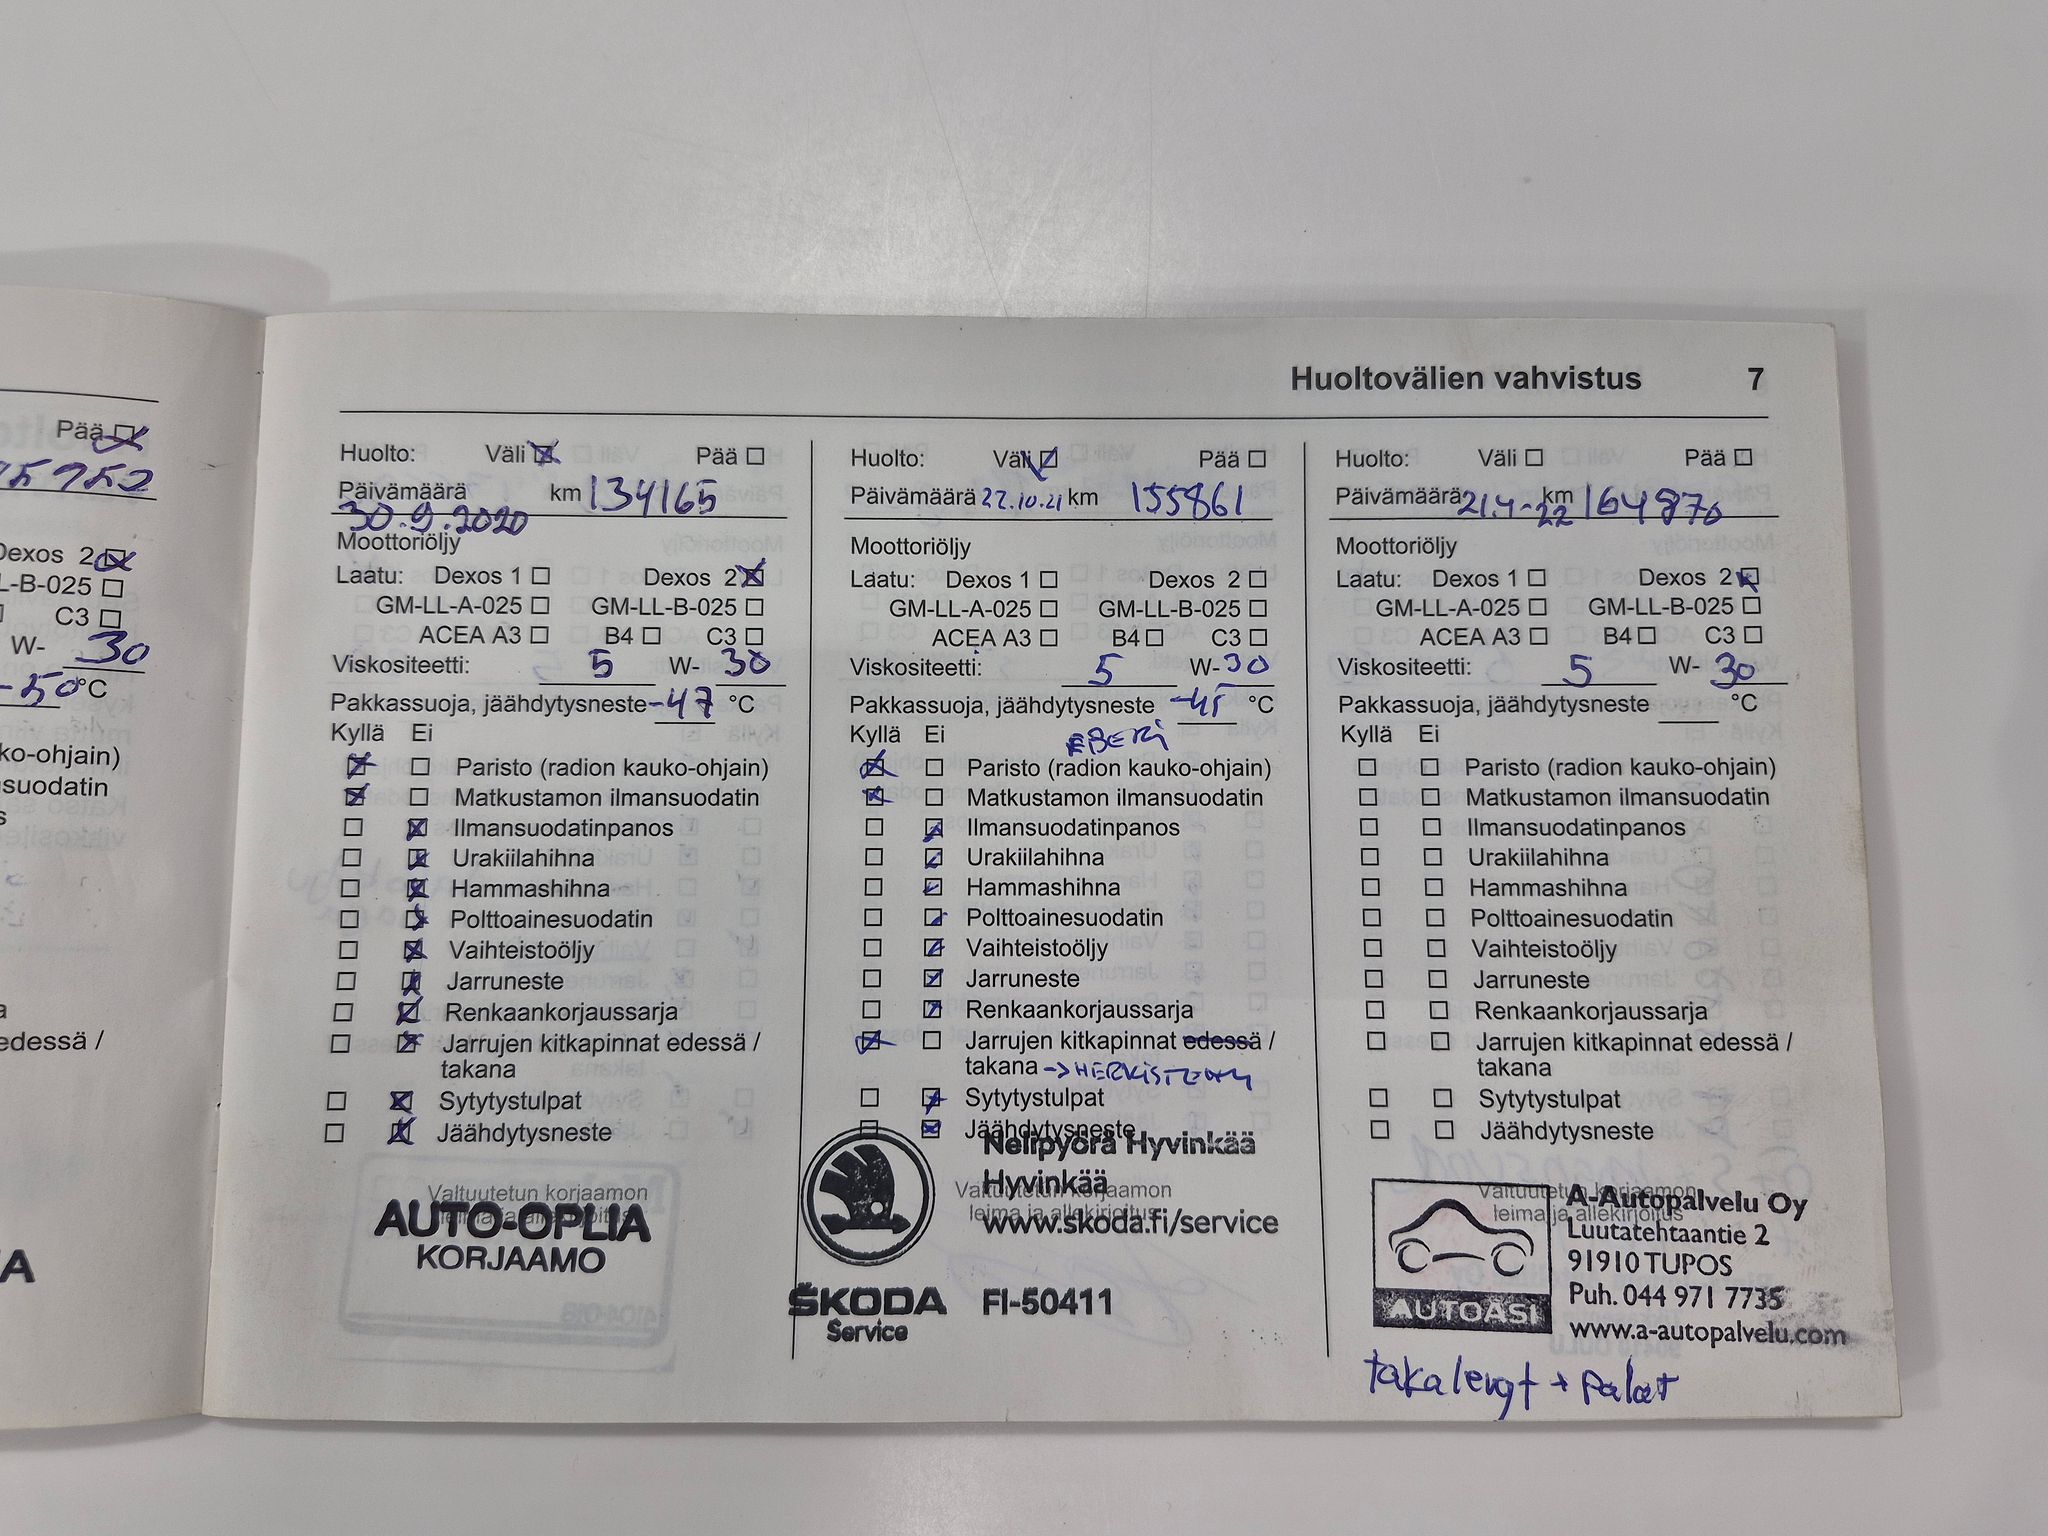 Pää
Dexos 2
L-B-025
C3
W- 30
-50 °C
ko-ohjain)
suodatin
edessä /
Huoltovälien vahvistus 7
Huolto: Väli Pää
Päivämäärä km 134165
30.9.2020
Moottoriöljy
Laatu: Dexos 1 Dexos 2
GM-LL-A-025 GM-LL-B-025
ACEA A3 B4 C3
Viskositeetti: 5 W- 30
Pakkassuoja, jäähdytysneste -47 °C
Kyllä Ei
Paristo (radion kauko-ohjain)
Matkustamon ilmansuodatin
Ilmansuodatinpanos
Urakiilahihna
Hammashihna
Polttoainesuodatin
Vaihteistoöljy
Jarruneste
Renkaankorjaussarja
Jarrujen kitkapinnat edessä /
takana
Sytytystulpat
Jäähdytysneste
Valtuutetun korjaamon
leima ja allekirjoitus
AUTO-OPLIA
KORJAAMO
Huolto: Väli Pää
Päivämäärä 22.10.21 km 155861
Moottoriöljy
Laatu: Dexos 1 Dexos 2
GM-LL-A-025 GM-LL-B-025
ACEA A3 B4 C3
Viskositeetti: 5 W- 30
Pakkassuoja, jäähdytysneste °C
Kyllä Ei
Paristo (radion kauko-ohjain)
Matkustamon ilmansuodatin
Ilmansuodatinpanos
Urakiilahihna
Hammashihna
Polttoainesuodatin
Vaihteistoöljy
Jarruneste
Renkaankorjaussarja
Jarrujen kitkapinnat edessä /
takana
Sytytystulpat
Jäähdytysneste
Nelipyörä Hyvinkää
Hyvinkää
Valtuutetun korjaamon
leima ja allekirjoitus
www.skoda.fi/service
ŠKODA FI-50411
Service
Huolto: Väli Pää
Päivämäärä 21.4-22 km 164870
Moottoriöljy
Laatu: Dexos 1 Dexos 2
GM-LL-A-025 GM-LL-B-025
ACEA A3 B4 C3
Viskositeetti: 5 W- 30
Pakkassuoja, jäähdytysneste °C
Kyllä Ei
Paristo (radion kauko-ohjain)
Matkustamon ilmansuodatin
Ilmansuodatinpanos
Urakiilahihna
Hammashihna
Polttoainesuodatin
Vaihteistoöljy
Jarruneste
Renkaankorjaussarja
Jarrujen kitkapinnat edessä /
takana
Sytytystulpat
Jäähdytysneste
Valtuutetun korjaamon
leima ja allekirjoitus
A-Autopalvelu Oy
Luutatehtaantie 2
91910 TUPOS
Puh. 044 971 7735
www.a-autopalvelu.com
AUTOASI
takalevyt + palat